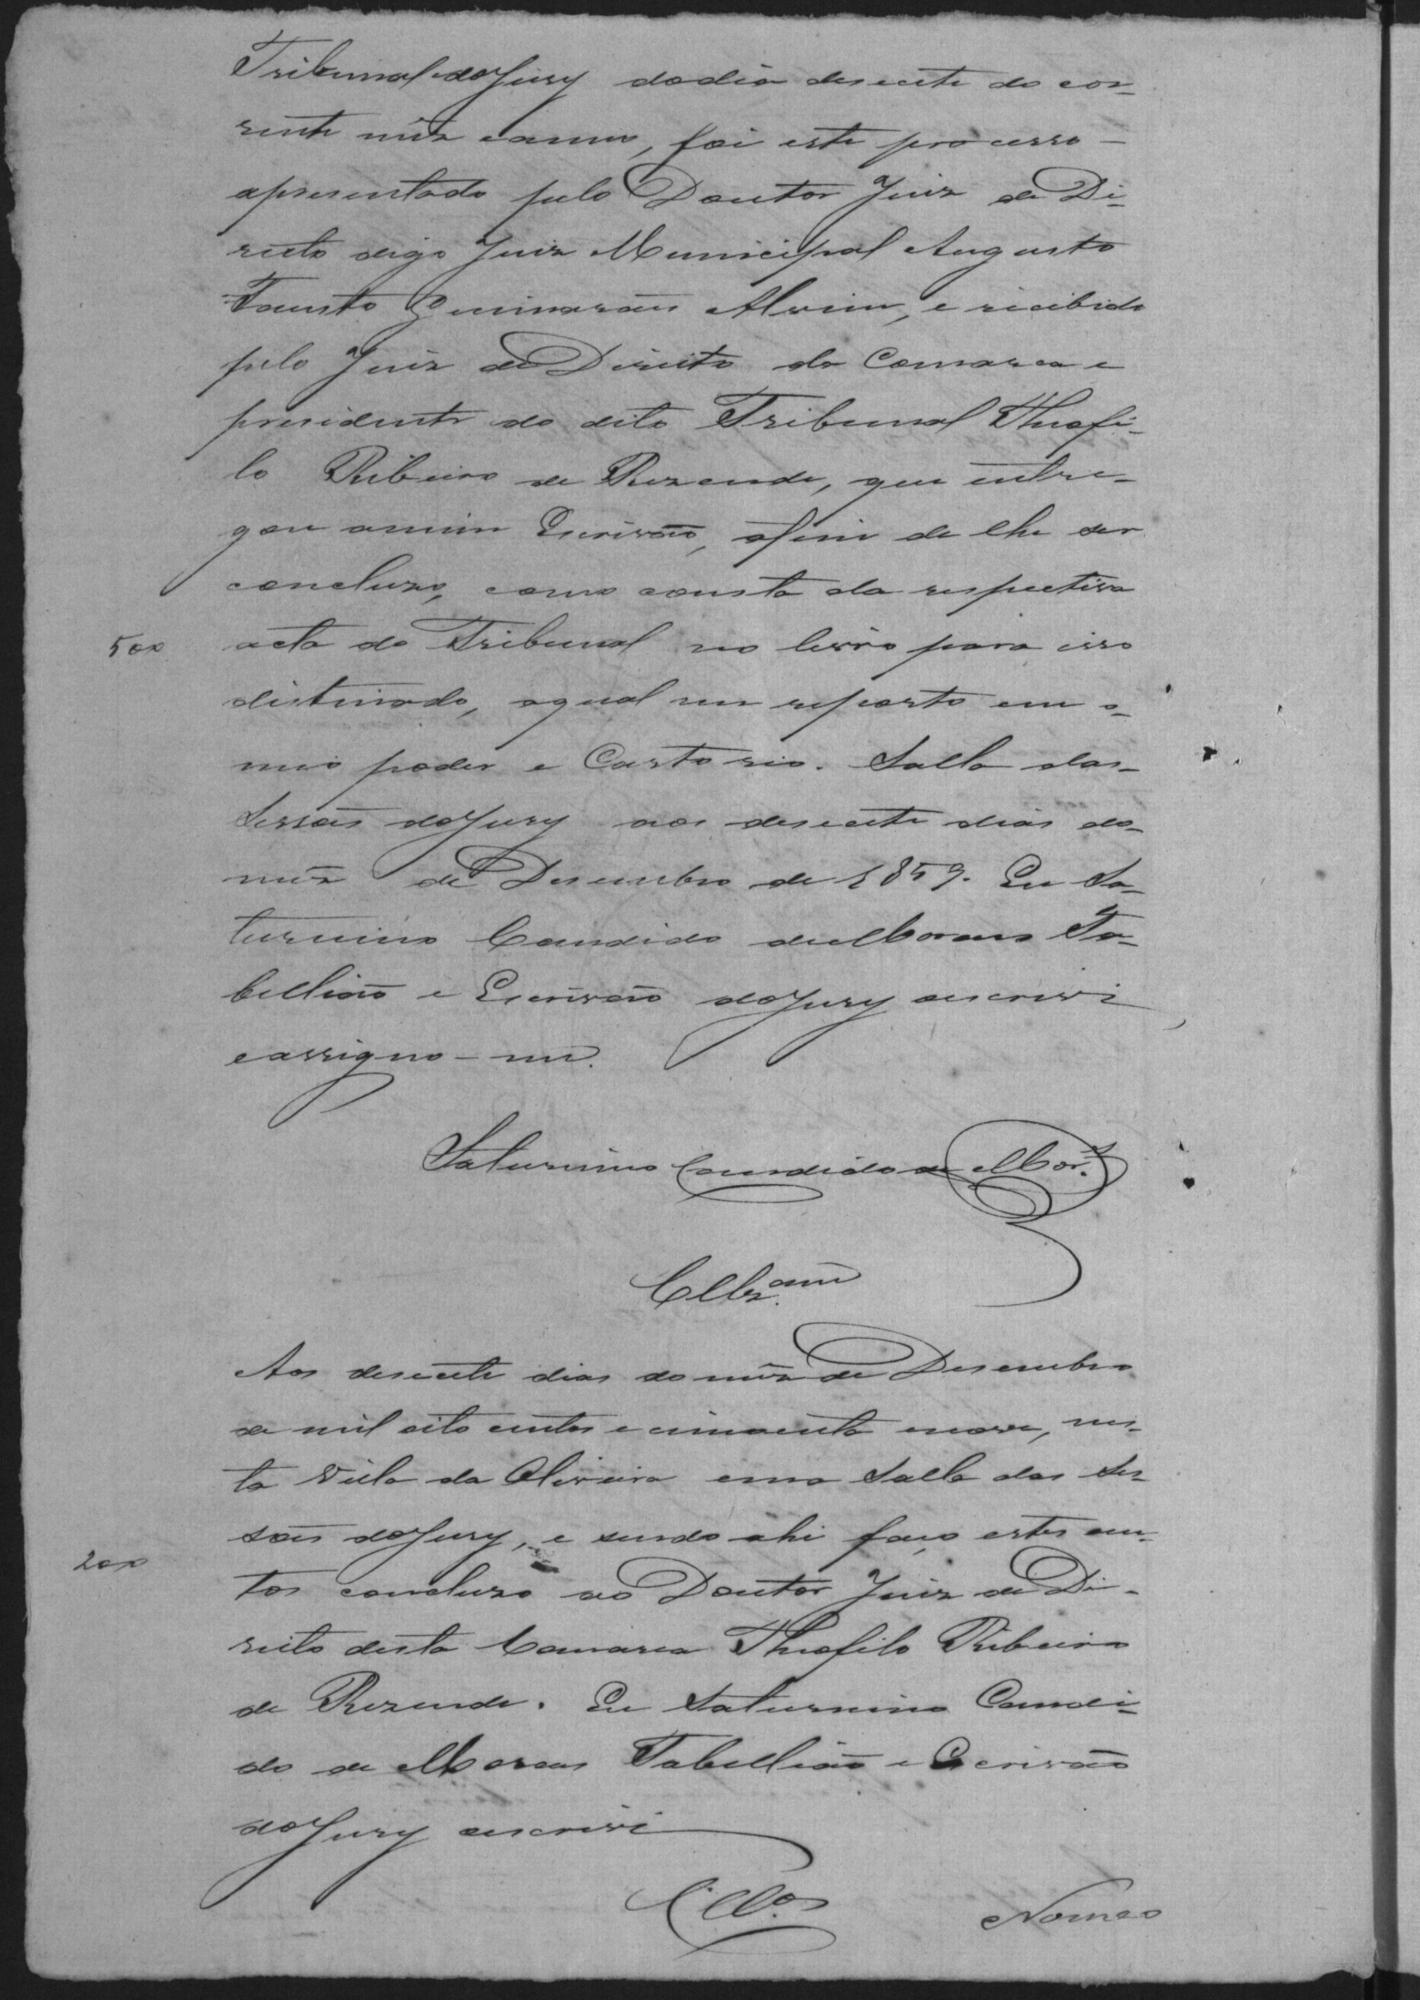 Tribunal do Jury do dia desecete do cor-
rente mêz e anno, foi este processo -
apresentado pelo Doutor Juiz de Di-
reito digo Juiz Municipal Augusto
Fausto Guimarães Alvim, e recibido
pelo Juiz de Direito da Comarca e
presidente do dito Tribunal Theofi-
lo Ribeiro de Rezende, que entre-
gou amim Escrivão, afim de lhe ser
concluzo, como consta da respectiva
500
acta do Tribunal no livro para isso
distinado, aqual me reporto em o-
meo poder e Cartorio. Salla das-
Sessões do Jury aos desecete dias do-
mêz de Desembro de 1859. Eu Sa-
turnino Candido de Moraes Ta-
bellião e Escrivão do Jury oescrevi
eassigno-me.
Saturnino Candido de Mor.s
Cllz.am
Aos desecete dias do mêz de Desembro
de mil oito centos e cincoenta enove, nes-
ta Villa da Oliveira ema Salla das Ses
sões do Jury, e sendo ahi faço estes au-
200
tos concluzo ao Doutor Juiz de Di-
reito desta Comarca Theofilo Ribeiro
de Rezende. Eu Saturnino Candi-
do de Moraes Tabellião e Escrivão
do Jury oescrevi
Cll.os
Nomeo